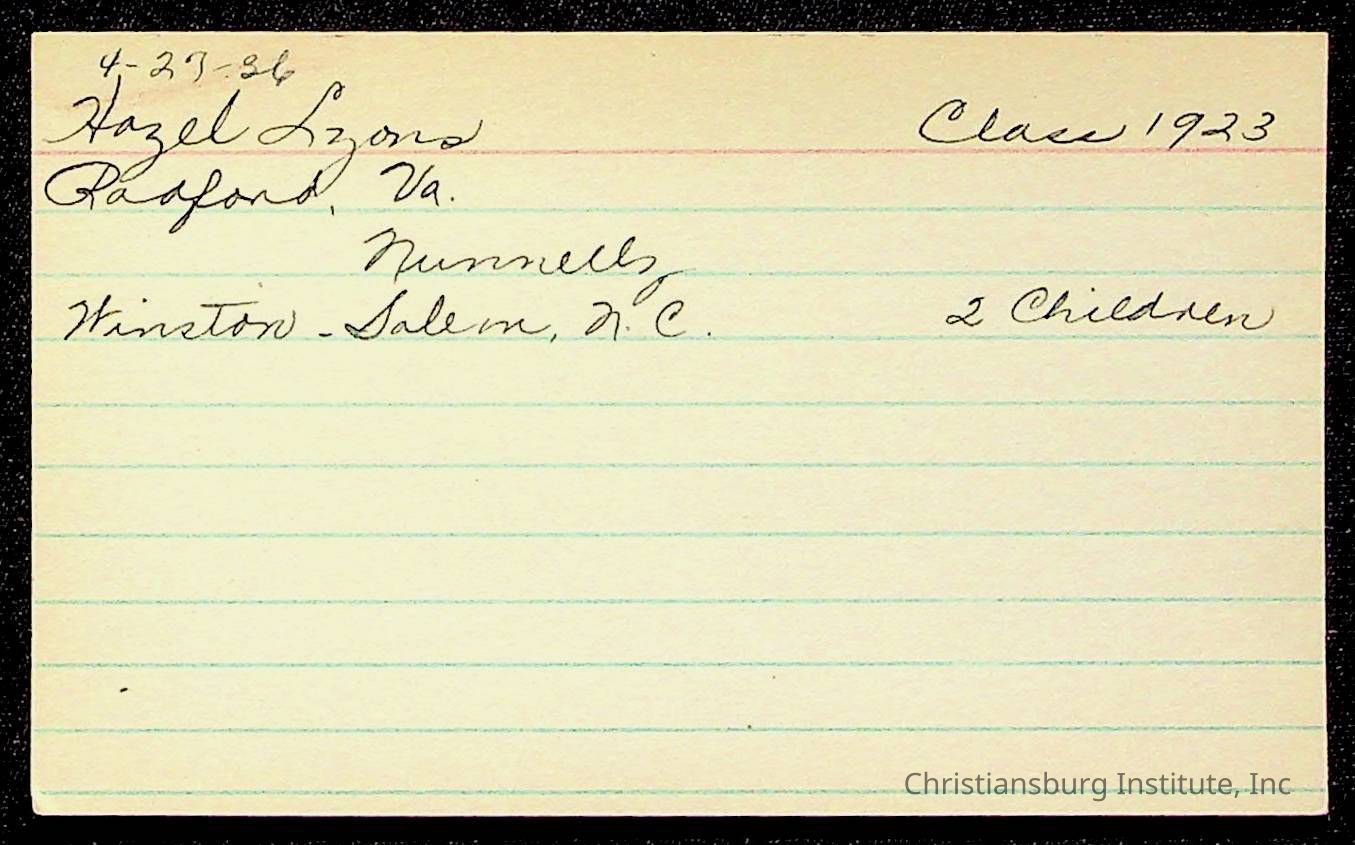 4-27-36
Hazel Lyons Class 1923
Radford, Va.
Nunnelly
Winston-Salem, N.C. 2 Children
Christiansburg Institute, Inc